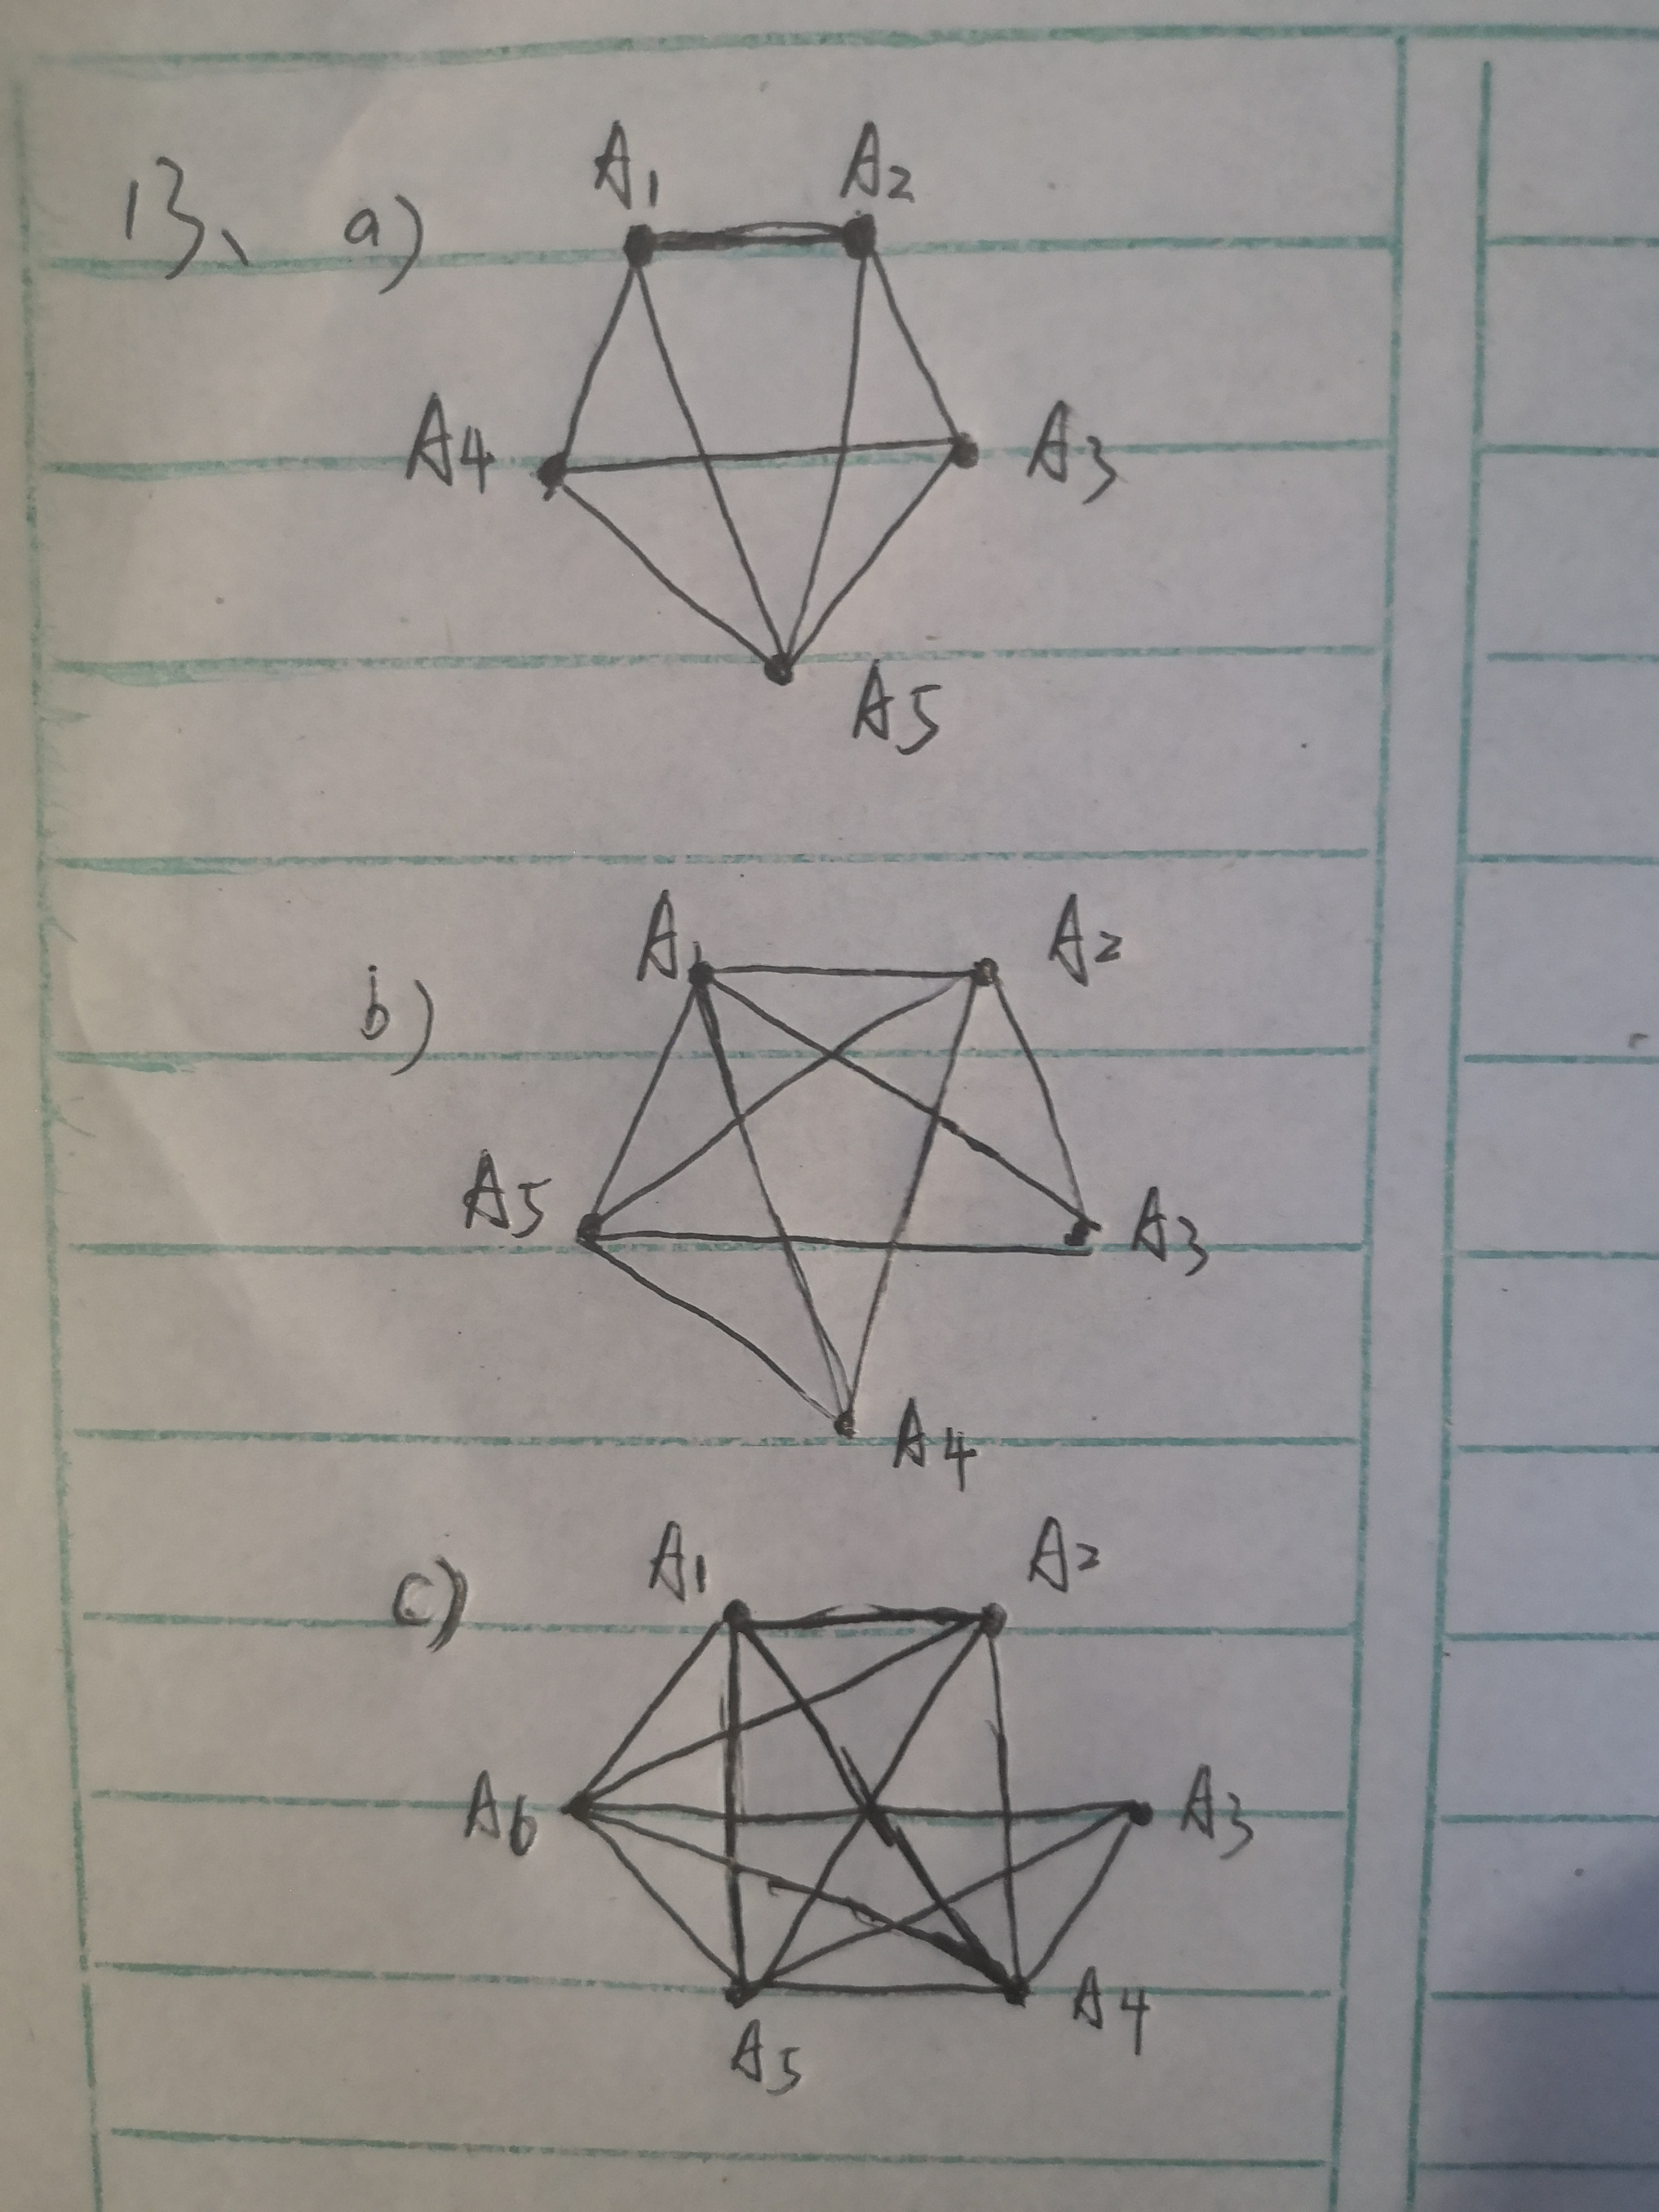 13、 a)
A1 A2
A4 A3
A5
b)
A1 A2
A5 A3
A4
c)
A1 A2
A6 A3
A5 A4